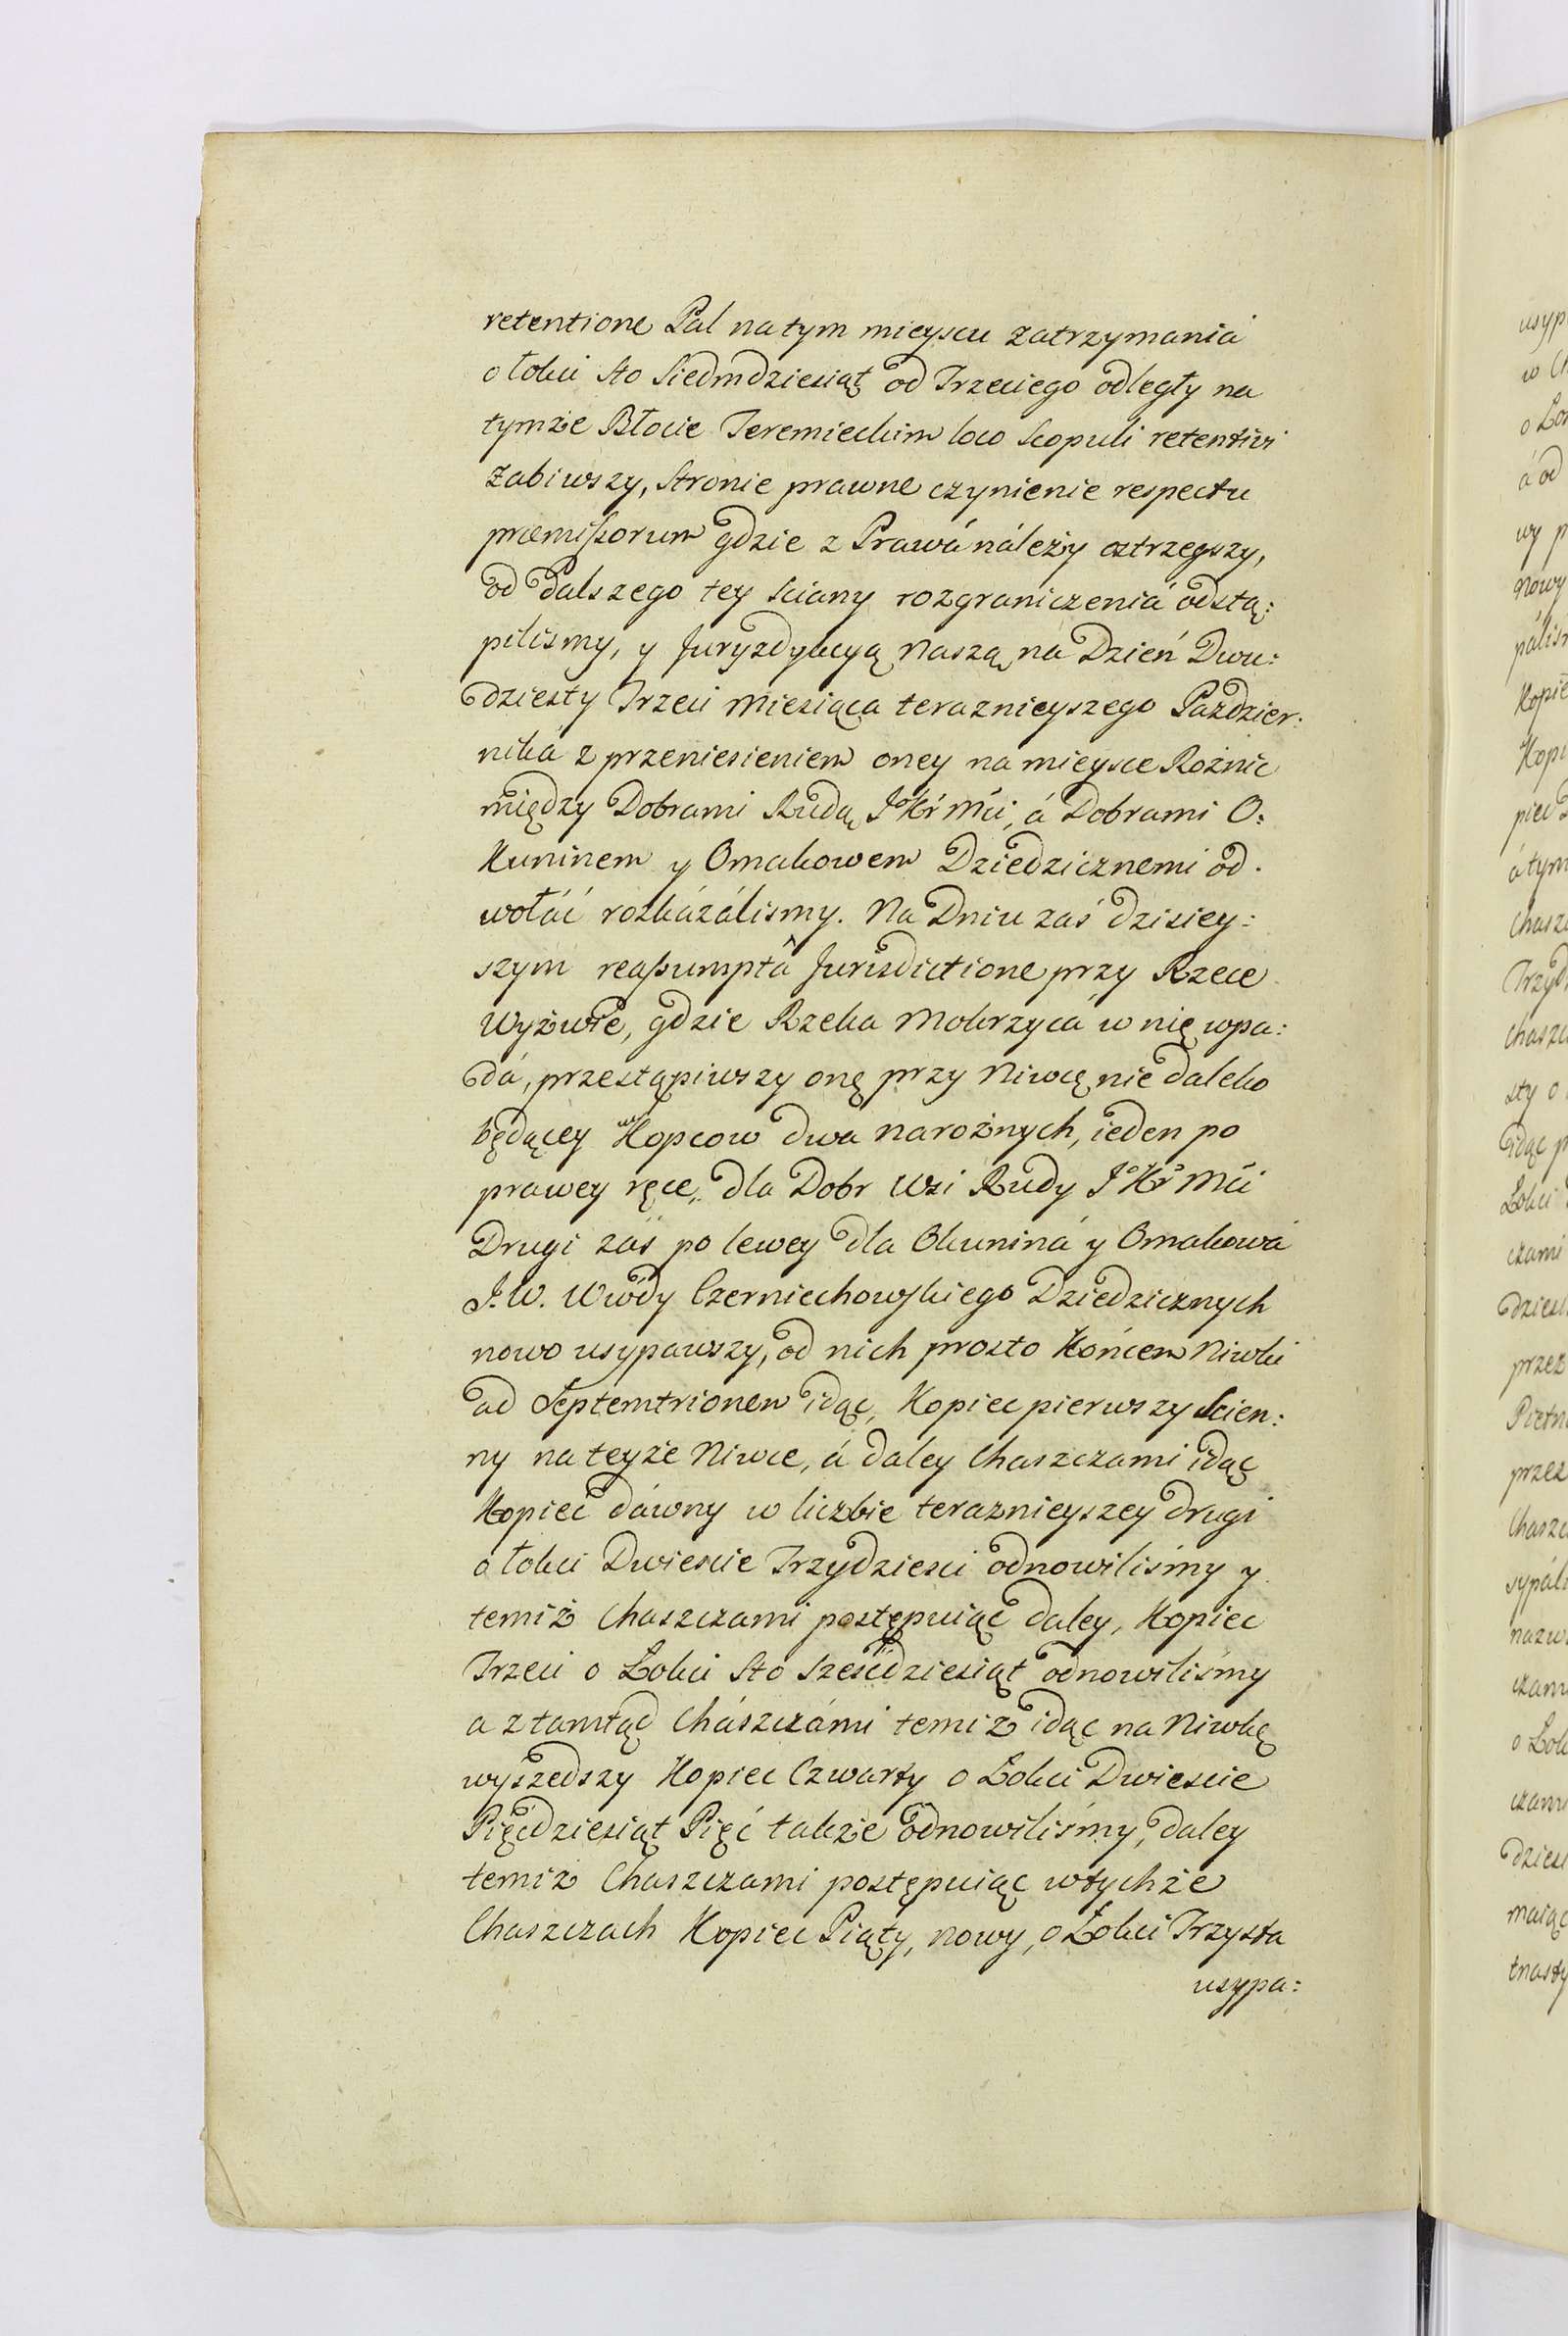 retentione Pal na tym mieyscu zatrzymania
o łokci sto siedmdziesiąt od Trzeciego odległy na
tymże Błocie Jeremieckim loco Scopuli retentivi
zabiwszy, stronie prawne czynienie respectu
præmissorum gdzie z Prawá náleży ostrzegszy,
od dalszego tey sciany rozgraniczeniá odstą:
pilismy, y Juryzdykcyą Naszą na Dzień Dwu:
dziesty Trzeci Miesiąca teraznieyszego Paździer:
niká z przeniesieniem oney na mieysce Rożnic
między Dobrami Rudą JKr Mći, á Dobrami O:
kuninem y Omakowem Dziedzicznemi od.
wołáć rozkázálismy. Na Dniu zaś dzisiey:
szym reassumptâ Jurisdictione przy Rzece
Wyżwie, gdzie Rzeka Mokrzyca w nię wpa:
dá, przestąpiwszy onę przy Niwcę nie daleko
będącey Kopcow dwa narożnych, ieden po
prawey ręce, dla Dobr Wsi Rudy JKr Mći
Drugi zaś po lewey dla Okuniná y Omakowá
J. W. Wwody Czerniechowskiego Dziedzicznych
nowo usypawszy, od nich prosto Końcem Niwki
ad Septemtrionem idąc, Kopiec pierwszy scien:
ny na teyże Niwce, á daley Chaszczami idąc
Kopiec dáwny w liczbie teraznieyszey drugi
o łokci Dwiescie Trzydziesci odnowiliśmy y
temiż Chaszczami postępuiąc daley, Kopiec
Trzeci o Łokci sto szescdziesiąt odnowiliśmy
a ztamtąd Chászczámi temiż idąc na Niwkę
wyszedszy Kopiec Czwarty o Łokci Dwiescie
Pięćdziesiąt Pięć także odnowiliśmy, daley
temiż Chaszczami postępuiąc w tychże
Chaszczach Kopiec Piąty, nowy, o Łokci Trzysta
usypa: